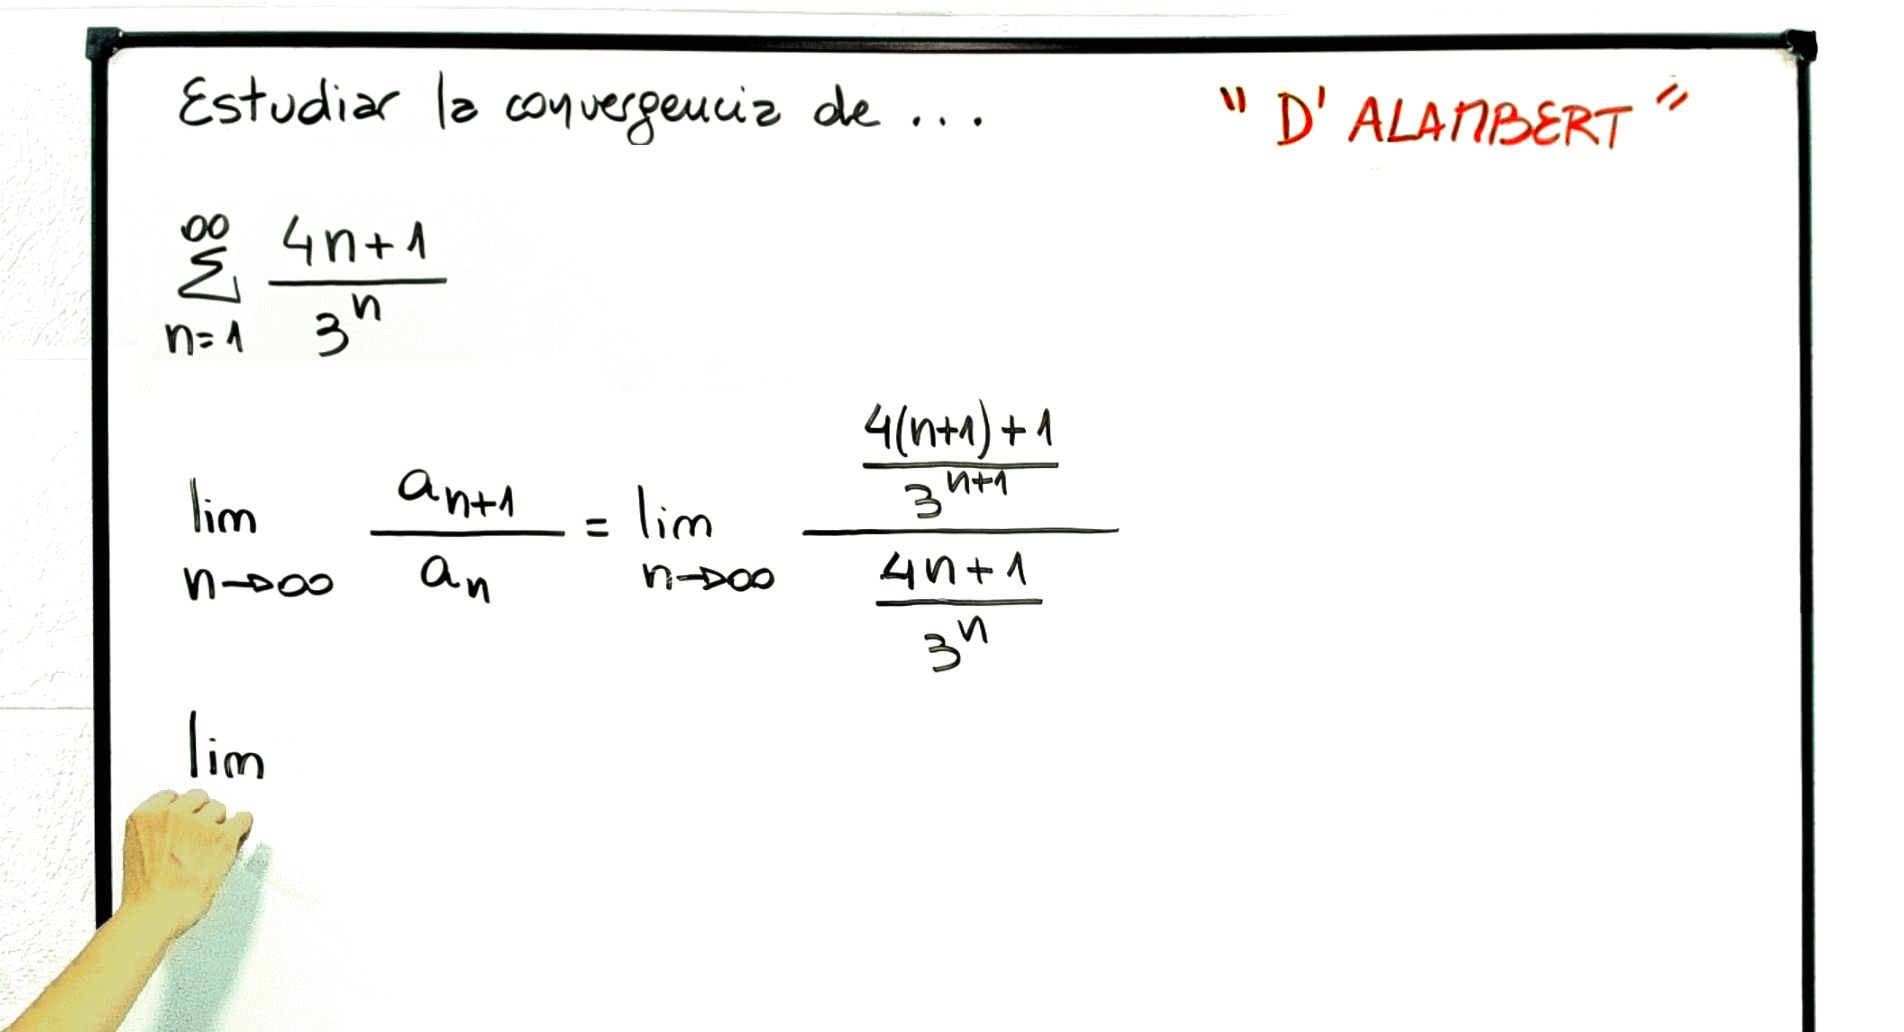 Estudiar la convergencia de ...
" D' ALAMBERT "
∞
∑ 4n+1 / 3^n
n=1
lim n→∞ a_{n+1} / a_n = lim n→∞ (4(n+1)+1 / 3^{n+1}) / (4n+1 / 3^n)
lim